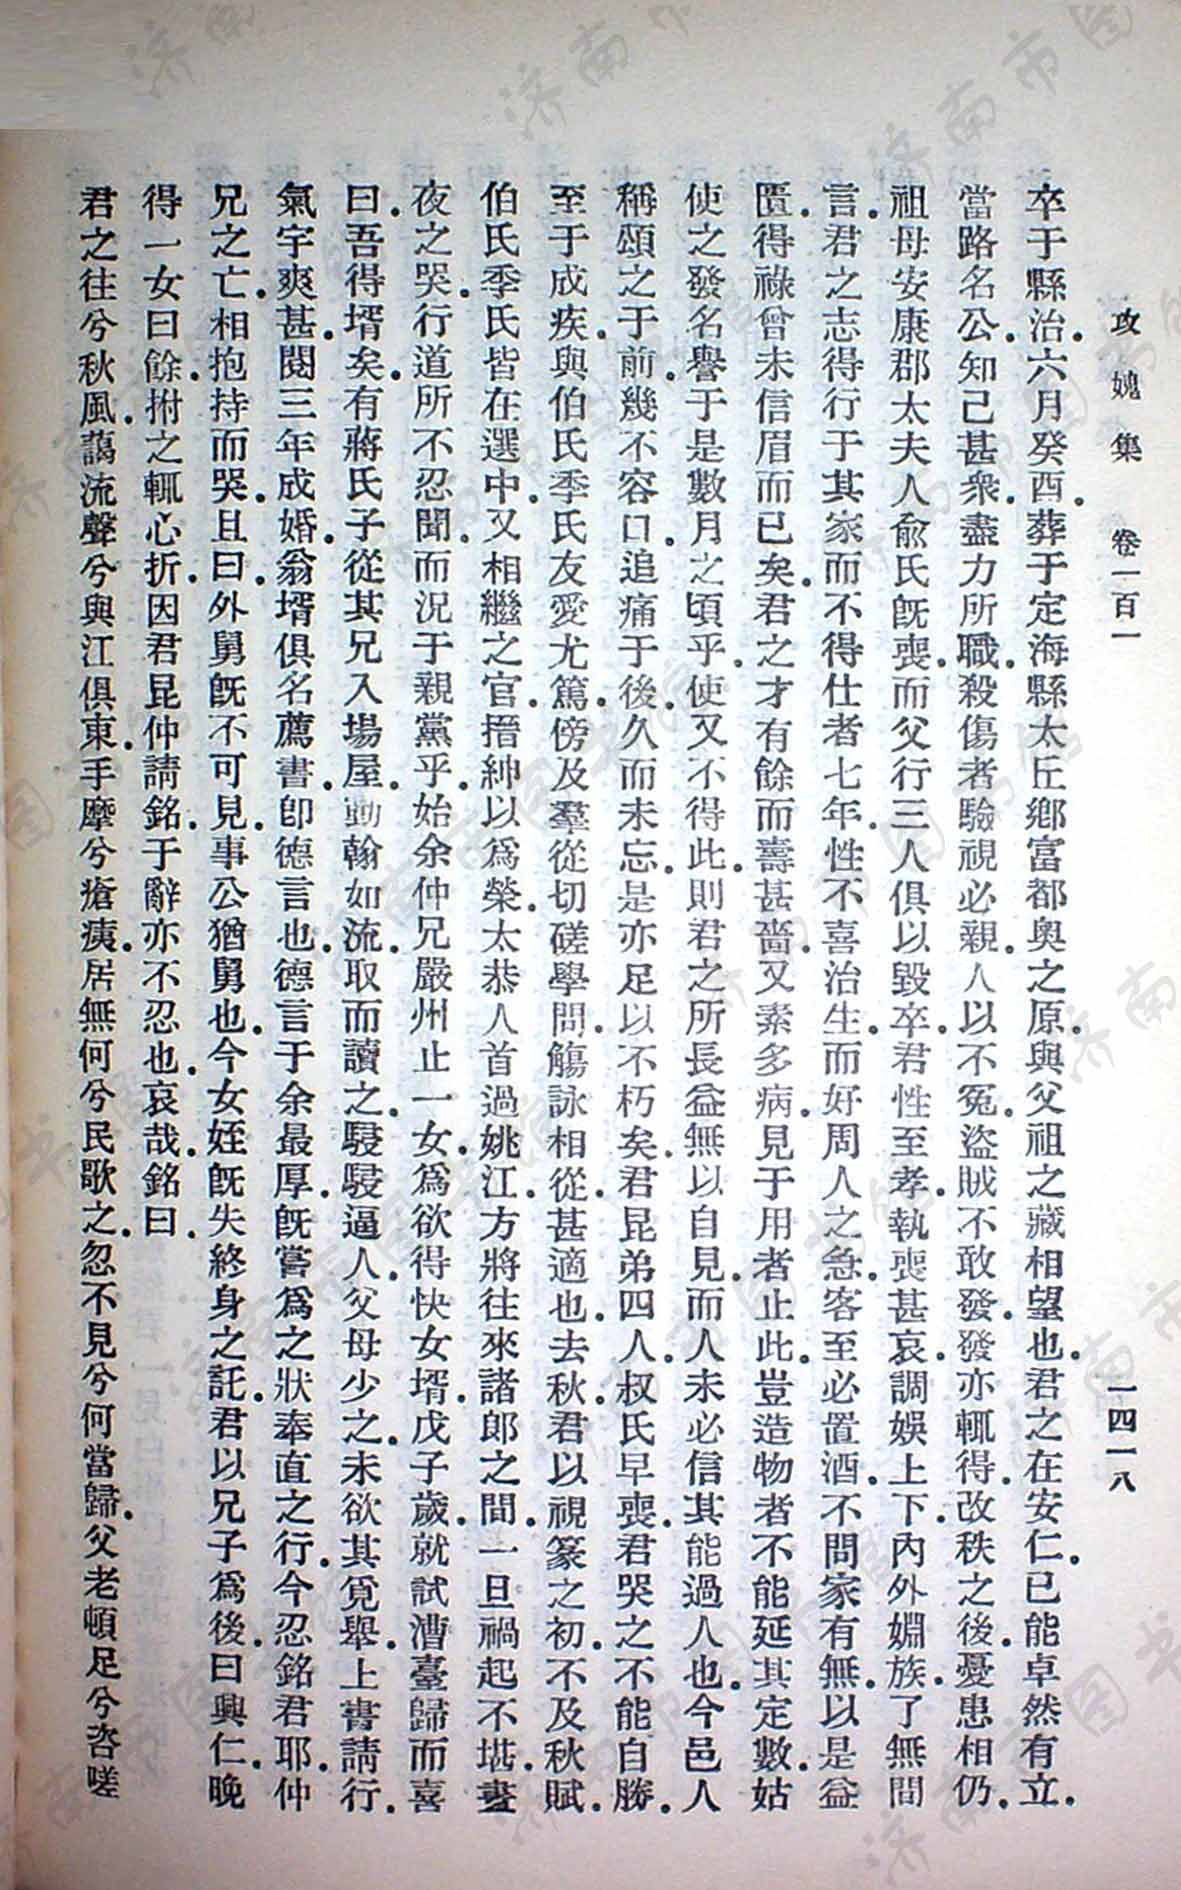 攻媿集　卷一百一　一四一八
卒于縣治。六月癸酉。葬于定海縣太丘鄉富都奧之原。與父祖之藏相望也。君之在安仁。已能卓然有立。
當路名公。知己甚衆。盡力所職。殺傷者驗視必親。人以不冤。盜賊不敢發。發亦輒得。改秩之後。憂患相仍。
祖母安康郡太夫人俞氏旣喪。而父行三人俱以毀卒。君性至孝。執喪甚哀。調娛上下。內外婣族。了無間
言。君之志得行于其家。而不得仕者七年。性不喜治生。而好周人之急。客至必置酒。不問家有無。以是益
匱。得祿曾未信眉而已矣。君之才有餘而壽甚嗇。又素多病。見于用者止此。豈造物者不能延其定數。姑
使之發名譽于是數月之頃乎。使又不得此。則君之所長。益無以自見。而人未必信其能過人也。今邑人
稱頌之于前。幾不容口。追痛于後。久而未忘。是亦足以不朽矣。君昆弟四人。叔氏早喪。君哭之不能自勝。
至于成疾。與伯氏季氏友愛尤篤。傍及羣從。切磋學問。觴詠相從。甚適也。去秋。君以視篆之初。不及秋賦。
伯氏季氏皆在選中。又相繼之官。搢紳以爲榮。太恭人首過姚江。方將往來諸郎之間。一旦禍起不堪。晝
夜之哭。行道所不忍聞。而況于親黨乎。始余仲兄嚴州止一女。爲欲得快女壻。戊子歲。就試漕臺。歸而喜
曰。吾得壻矣。有蔣氏子從其兄入場屋。動翰如流。取而讀之。駸駸逼人。父母少之。未欲其覓舉。上書請行。
氣宇爽甚。閱三年成婚。翁壻俱名薦書。卽德言也。德言于余最厚。旣嘗爲之狀奉直之行。今忍銘君耶。仲
兄之亡。相抱持而哭。且曰。外舅旣不可見。事公猶舅也。今女姪旣失終身之託。君以兄子爲後。曰興仁。晚
得一女曰餘。拊之輒心折。因君昆仲請銘。于辭亦不忍也。哀哉。銘曰。
君之往兮秋風。藹流聲兮與江俱東。手摩兮瘡痍。居無何兮民歌之。忽不見兮何當歸。父老頓足兮咨嗟